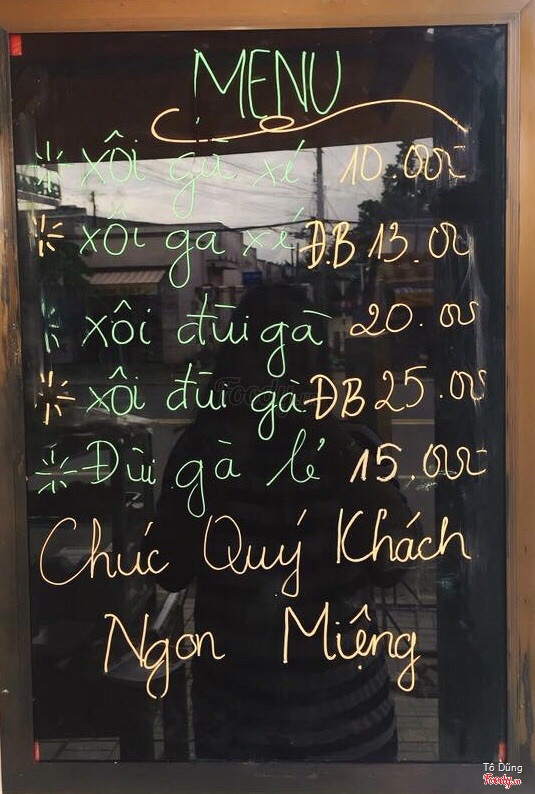 MENU
xôi gà xé 10.000
xôi gà xé Đ.B 13.000
xôi đùi gà 20.000
xôi đùi gà ĐB 25.000
Đùi gà lẻ 15.000
Chúc Quý Khách
Ngon Miệng
Foody
Tô Dũng
Foody.vn